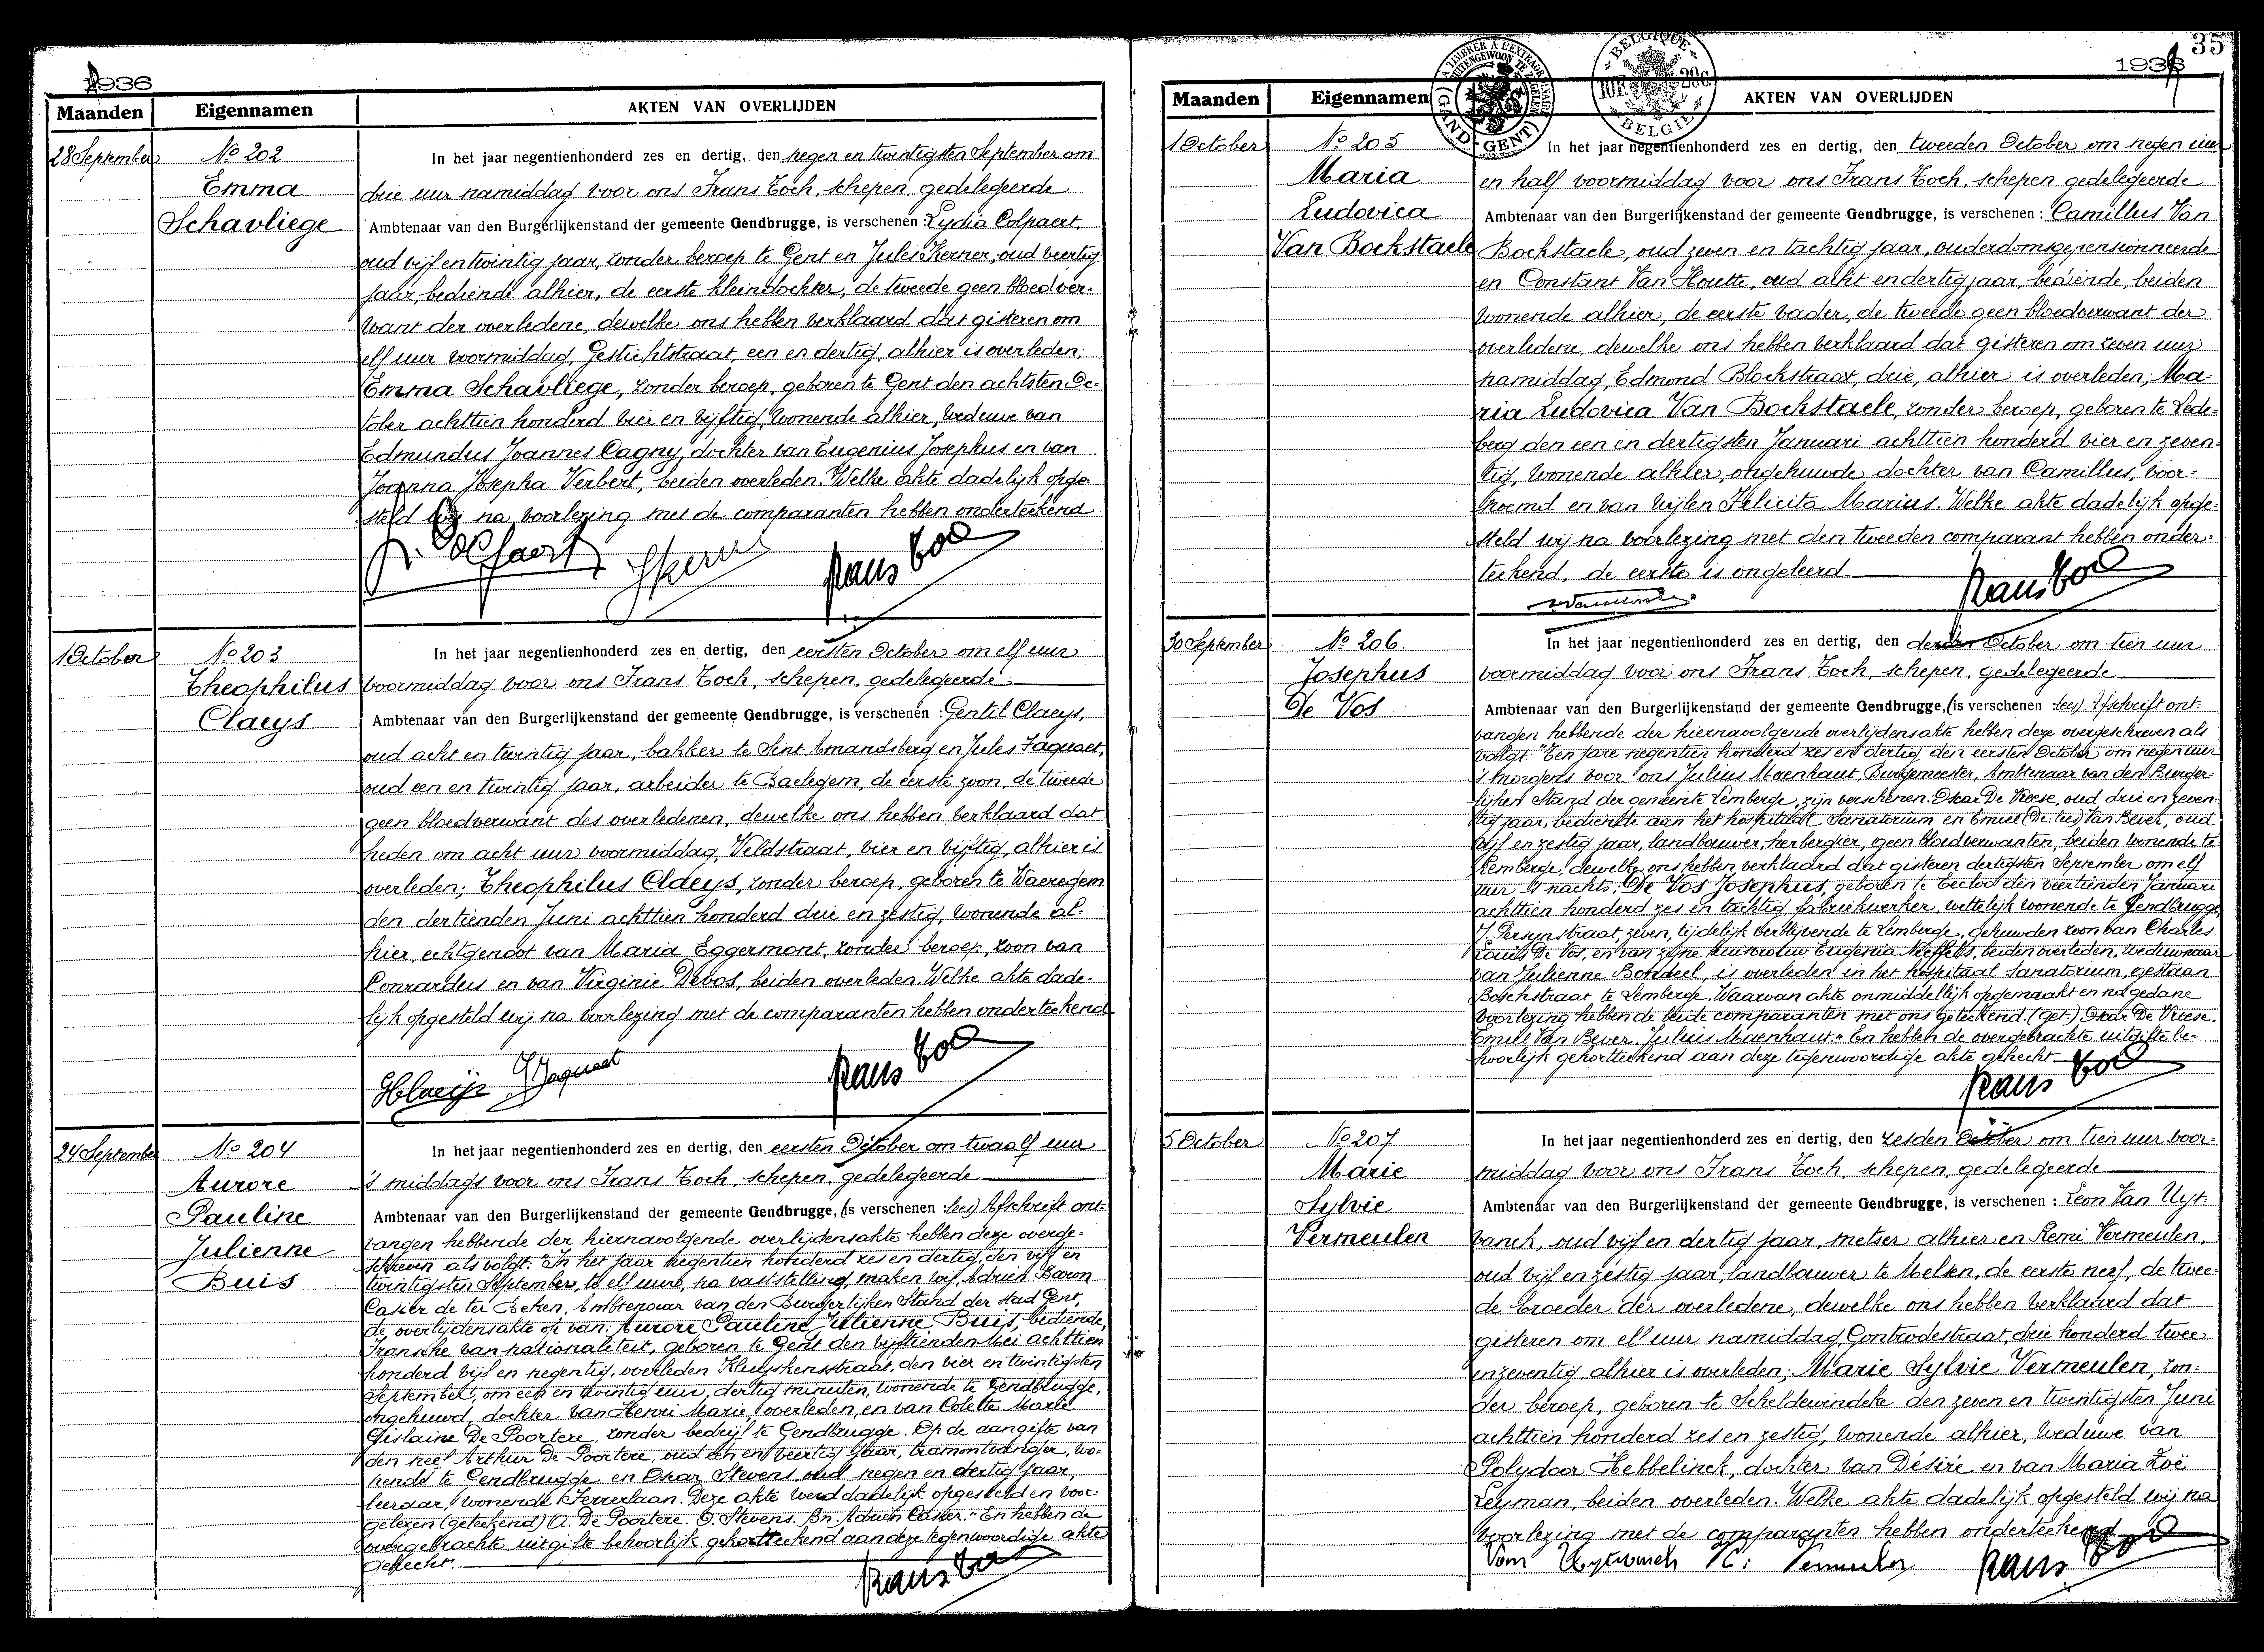 1936
Maanden Eigennamen AKTEN VAN OVERLIJDEN
28 September No 202
Emma
Schavliege
In het jaar negentienhonderd zes en dertig, den negen en twintigsten September om
drie uur namiddag voor ons Frans Toch, schepen, gedelegeerde
Ambtenaar van den Burgerlijkenstand der gemeente Gendbrugge, is verschenen: Lydia Colpaert,
oud vijf en twintig jaar, zonder beroep te Gent en Jules Kerner, oud veertig
jaar, bediende alhier, de eerste kleindochter, de tweede geen bloedver-
want der overledene, dewelke ons hebben verklaard dat gisteren om
elf uur voormiddag, Gestichtstraat, een en dertig, alhier is overleden;
Emma Schavliege, zonder beroep, geboren te Gent den achtsten Oc-
tober achttien honderd vier en vijftig, wonende alhier, weduwe van
Edmundus Joannes Cagny, dochter van Eugenius Josephus en van
Joanna Josepha Verbert, beiden overleden. Welke akte dadelijk opge-
steld wij na voorlezing met de comparanten hebben onderteekend
1 October No 203
Theophilus
Claeys
In het jaar negentienhonderd zes en dertig, den eersten October om elf uur
voormiddag voor ons Frans Toch, schepen, gedelegeerde
Ambtenaar van den Burgerlijkenstand der gemeente Gendbrugge, is verschenen: Gentil Claeys,
oud acht en twintig jaar, bakker te Sint Amandsberg en Jules Jaquaet,
oud een en twintig jaar, arbeider te Baelegem, de eerste zoon, de tweede
geen bloedverwant des overledenen, dewelke ons hebben verklaard dat
heden om acht uur voormiddag, Veldstraat, vier en vijftig, alhier is
overleden; Theophilus Claeys, zonder beroep, geboren te Waeregem
den dertienden Juni achttien honderd drie en zestig, wonende al-
hier, echtgenoot van Maria Eggermont, zonder beroep, zoon van
Conrardus en van Virginie Devos, beiden overleden. Welke akte dade-
lijk opgesteld wij na voorlezing met de comparanten hebben onderteekend
24 September No 204
Aurore
Pauline
Julienne
Buis
In het jaar negentienhonderd zes en dertig, den eersten October om twaalf uur
's middags voor ons Frans Toch, schepen, gedelegeerde
Ambtenaar van den Burgerlijkenstand der gemeente Gendbrugge, (is verschenen: lees) Afschrift ont-
vangen hebbende der hiernavolgende overlijdensakte hebben deze overge-
schreven als volgt: "In het jaar negentien honderd zes en dertig, den vijf en
twintigsten September, te elf ure, na vaststelling, maken wij, Adrien Baron
Casier de ter Beken, Ambtenaar van den Burgerlijken Stand der stad Gent,
de overlijdensakte op van: Aurore Pauline Julienne Buis, bediende,
Fransche van nationaliteit, geboren te Gent den vijftienden Mei achttien
honderd vijf en negentig, overleden Kluyskensstraat, den vier en twintigsten
September, om een en twintig uur, dertig minuten, wonende te Gendbrugge,
ongehuwd, dochter van Henri Marie, overleden, en van Colette Marie
Gislaine De Poortere, zonder bedrijf te Gendbrugge. Op de aangifte van
den neef Arthur De Poortere, oud een en veertig jaar, tramontvanger, wo-
nende te Gendbrugge en Oscar Stevens, oud negen en dertig jaar,
leeraar, wonende Ferrerlaan. Deze akte werd dadelijk opgesteld en voor-
gelezen (geteekend) A. De Poortere. O. Stevens. Bn. Adrien Casier." En hebben de
overgebrachte uitgifte behoorlijk gekortteekend aan deze tegenwoordige akte
gehecht.
35
1936
BELGIQUE
10F 20c.
BELGIE
GAND-GENT
Maanden Eigennamen AKTEN VAN OVERLIJDEN
1 October No 205
Maria
Ludovica
Van Bockstaele
In het jaar negentienhonderd zes en dertig, den tweeden October om negen uur
en half voormiddag voor ons Frans Toch, schepen, gedelegeerde
Ambtenaar van den Burgerlijkenstand der gemeente Gendbrugge, is verschenen: Camillus Van
Bockstaele, oud zeven en tachtig jaar, ouderdomsgepensionneerde
en Constant Van Houtte, oud acht en dertig jaar, bediende, beiden
wonende alhier, de eerste vader, de tweede geen bloedverwant der
overledene, dewelke ons hebben verklaard dat gisteren om zeven uur
namiddag, Edmond Blockstraat, drie, alhier is overleden; Ma-
ria Ludovica Van Bockstaele, zonder beroep, geboren te Lede-
berg den een en dertigsten Januari achttien honderd vier en zeven-
tig, wonende alhier, ongehuwde dochter van Camillus, voor-
noemd en van wijlen Felicita Marius. Welke akte dadelijk opge-
steld wij na voorlezing met den tweeden comparant hebben onder-
teekend, de eerste is ongeleerd
30 September No 206
Josephus
De Vos
In het jaar negentienhonderd zes en dertig, den derden October om tien uur
voormiddag voor ons Frans Toch, schepen, gedelegeerde
Ambtenaar van den Burgerlijkenstand der gemeente Gendbrugge, (is verschenen lees) Afschrift ont-
vangen hebbende der hiernavolgende overlijdensakte hebben deze overgeschreven als
volgt: "Ten jare negentien honderd zes en dertig den eersten October om negen uur
's morgens voor ons Julius Maenhaut, Burgemeester, Ambtenaar van den Burger-
lijken Stand der gemeente Lemberge, zijn verschenen: Oscar De Vreese, oud drie en zeven-
tig jaar, bediende aan het hospitaal Sanatorium en Emiel (De: lees) Van Bever, oud
vijf en zestig jaar, landbouwer, herbergier, geen bloedverwanten, beiden wonende te
Lemberge, dewelke ons hebben verklaard dat gisteren dertigsten September om elf
uur 's nachts: De Vos Josephus, geboren te Eecloo den veertienden Januari
achttien honderd zes en tachtig, fabriekwerker, wettelijk wonende te Gendbrugge
J. Persynstraat, zeven, tijdelijk verblijvende te Lemberge, gehuwden zoon van Charles
Louis De Vos, en van zijne huisvrouw Eugenia Neffels, beiden overleden, weduwnaar
van Julienne Bondeel, is overleden in het hospitaal Sanatorium, gestaan
Boschstraat te Lemberge. Waarvan akte onmiddellijk opgemaakt en na gedane
voorlezing hebben de beide comparanten met ons geteekend. (get.) Oscar De Vreese.
Emiel Van Bever. Julius Maenhaut." En hebben de overgebrachte uitgifte be-
hoorlijk gekortteekend aan deze tegenwoordige akte gehecht
5 October No 207
Marie
Sylvie
Vermeulen
In het jaar negentienhonderd zes en dertig, den zesden October om tien uur voor-
middag voor ons Frans Toch, schepen, gedelegeerde
Ambtenaar van den Burgerlijkenstand der gemeente Gendbrugge, is verschenen: Leon Van Uyt-
vanck, oud vijf en dertig jaar, metser alhier en Remi Vermeulen,
oud vijf en zestig jaar, landbouwer te Melsen, de eerste neef, de twee-
de broeder der overledene, dewelke ons hebben verklaard dat
gisteren om elf uur namiddag, Gontrodestraat, drie honderd twee
en zeventig, alhier is overleden; Marie Sylvie Vermeulen, zon-
der beroep, geboren te Scheldewindeke den zeven en twintigsten Juni
achttien honderd zes en zestig, wonende alhier, weduwe van
Polydoor Hebbelinck, dochter van Désiré en van Maria Zoë
Leyman, beiden overleden. Welke akte dadelijk opgesteld wij na
voorlezing met de comparanten hebben onderteekend